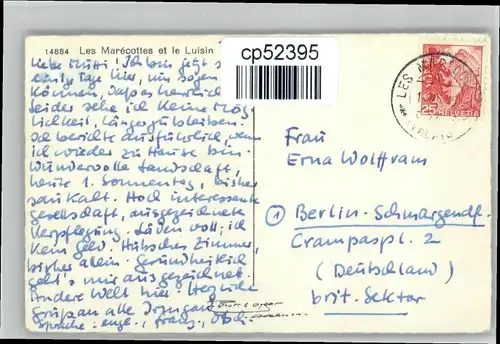 14884 Les Marécottes et le Luisin
cp52395
Liebe Mutti! Ich bin jetzt s
einige Tage hier, um sagen
können, daß es herrlich
leider sehe ich keine Mög-
lichkeit, länger zu bleiben.
Ich berichte ausführlich, wenn
ich wieder zu Hause bin.
Wundervolle Landschaft,
heute 1. Sonnentag, bisher
saukalt. Hoch interessante
Gesellschaft, ausgezeichnete
Verpflegung. Läden voll; ich
kein Geld. Hübsches Zimmer,
bisher allein. Gesundheitlich
geht's mir ausgezeichnet.
Andere Welt hier. Herzliche
Grüße an alle
Sprache: engl., franz., dtsch.
LES
25 HELVETIA
Frau
Erna Wolffram
1 Berlin-Schmargendf.
Crampaspl. 2
(Deutschland)
brit. Sektor